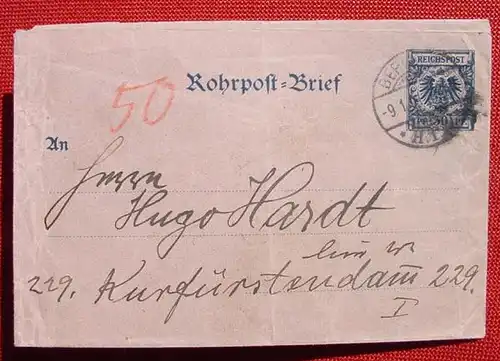 REICHSPOST
50
Rohrpost-Brief
BER
-9.1.
* H.T
An
Herrn
Hugo Hardt
229. Kurfürstendamm 229.
I